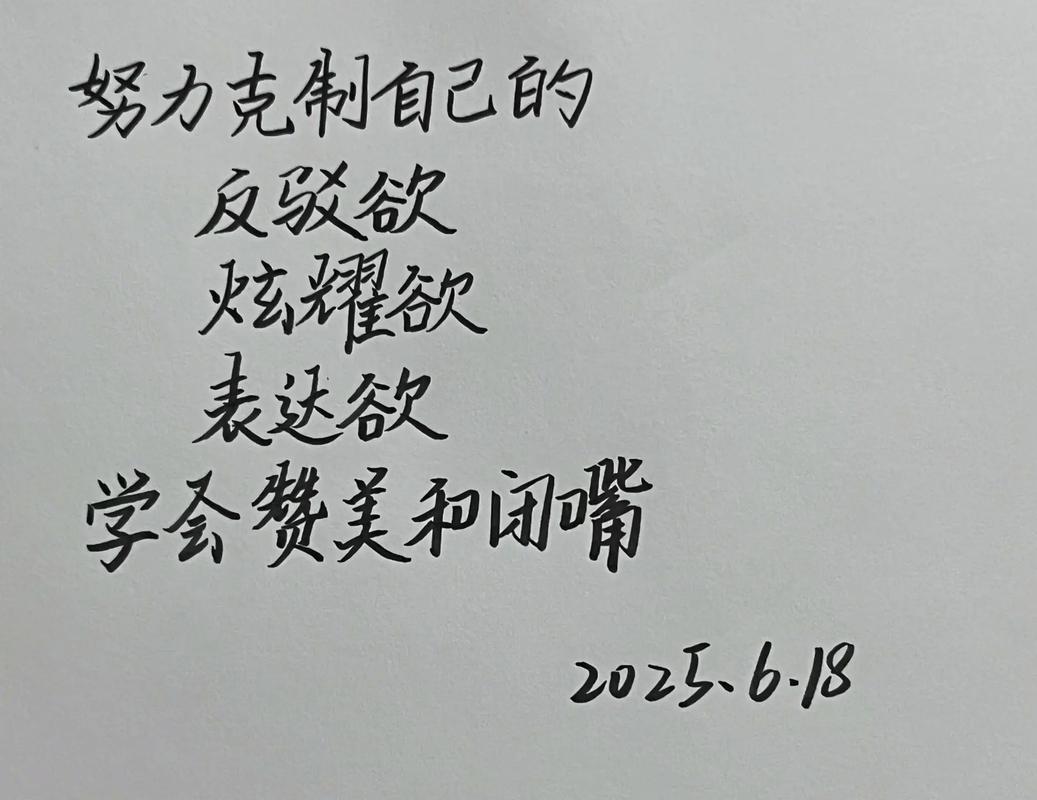 努力克制自己的
反驳欲
炫耀欲
表达欲
学会赞美和闭嘴
2025.6.18